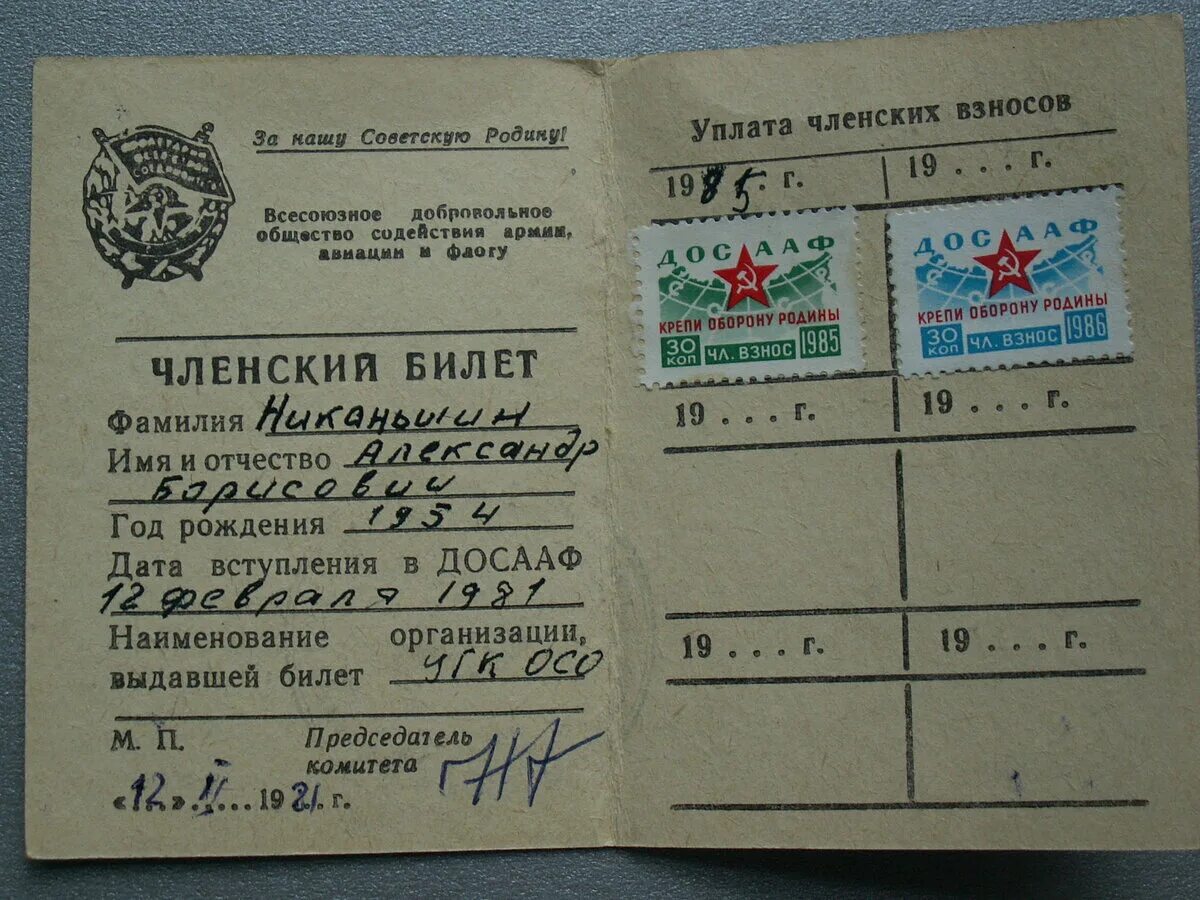 За нашу Советскую Родину!
Всесоюзное добровольное
общество содействия армии,
авиации и флоту
ЧЛЕНСКИЙ БИЛЕТ
Фамилия Никаньшин
Имя и отчество Александр
Борисович
Год рождения 1954
Дата вступления в ДОСААФ
12 февраля 1981
Наименование организации,
выдавшей билет УГК ОСО
М. П. Председатель
комитета
«12» II 1981 г.
Уплата членских взносов
1985 г. 19 . . . г.
ДОСААФ
КРЕПИ ОБОРОНУ РОДИНЫ
30 КОП ЧЛ. ВЗНОС 1985
ДОСААФ
КРЕПИ ОБОРОНУ РОДИНЫ
30 КОП ЧЛ. ВЗНОС 1986
19 . . . г. 19 . . . г.
19 . . . г. 19 . . . г.